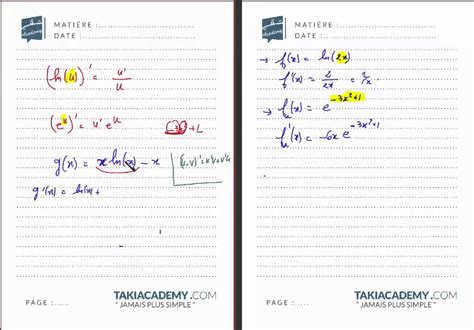 MATIÈRE :
DATE :
(ln(u))' = u'/u
(e^u)' = u' e^u
g(x) = x ln(x) - x
(u·v)' = u'v + v'u
g'(x) = ln(x) +
PAGE :.....
TAKIACADEMY.COM
" JAMAIS PLUS SIMPLE "
MATIÈRE :
DATE :
→ f(x) = ln(2x)
f'(x) = 2/2x = 1/x
→ f(x) = e^{-3x²+1}
f'(x) = -6x e^{-3x²+1}
PAGE :.....
TAKIACADEMY.COM
" JAMAIS PLUS SIMPLE "